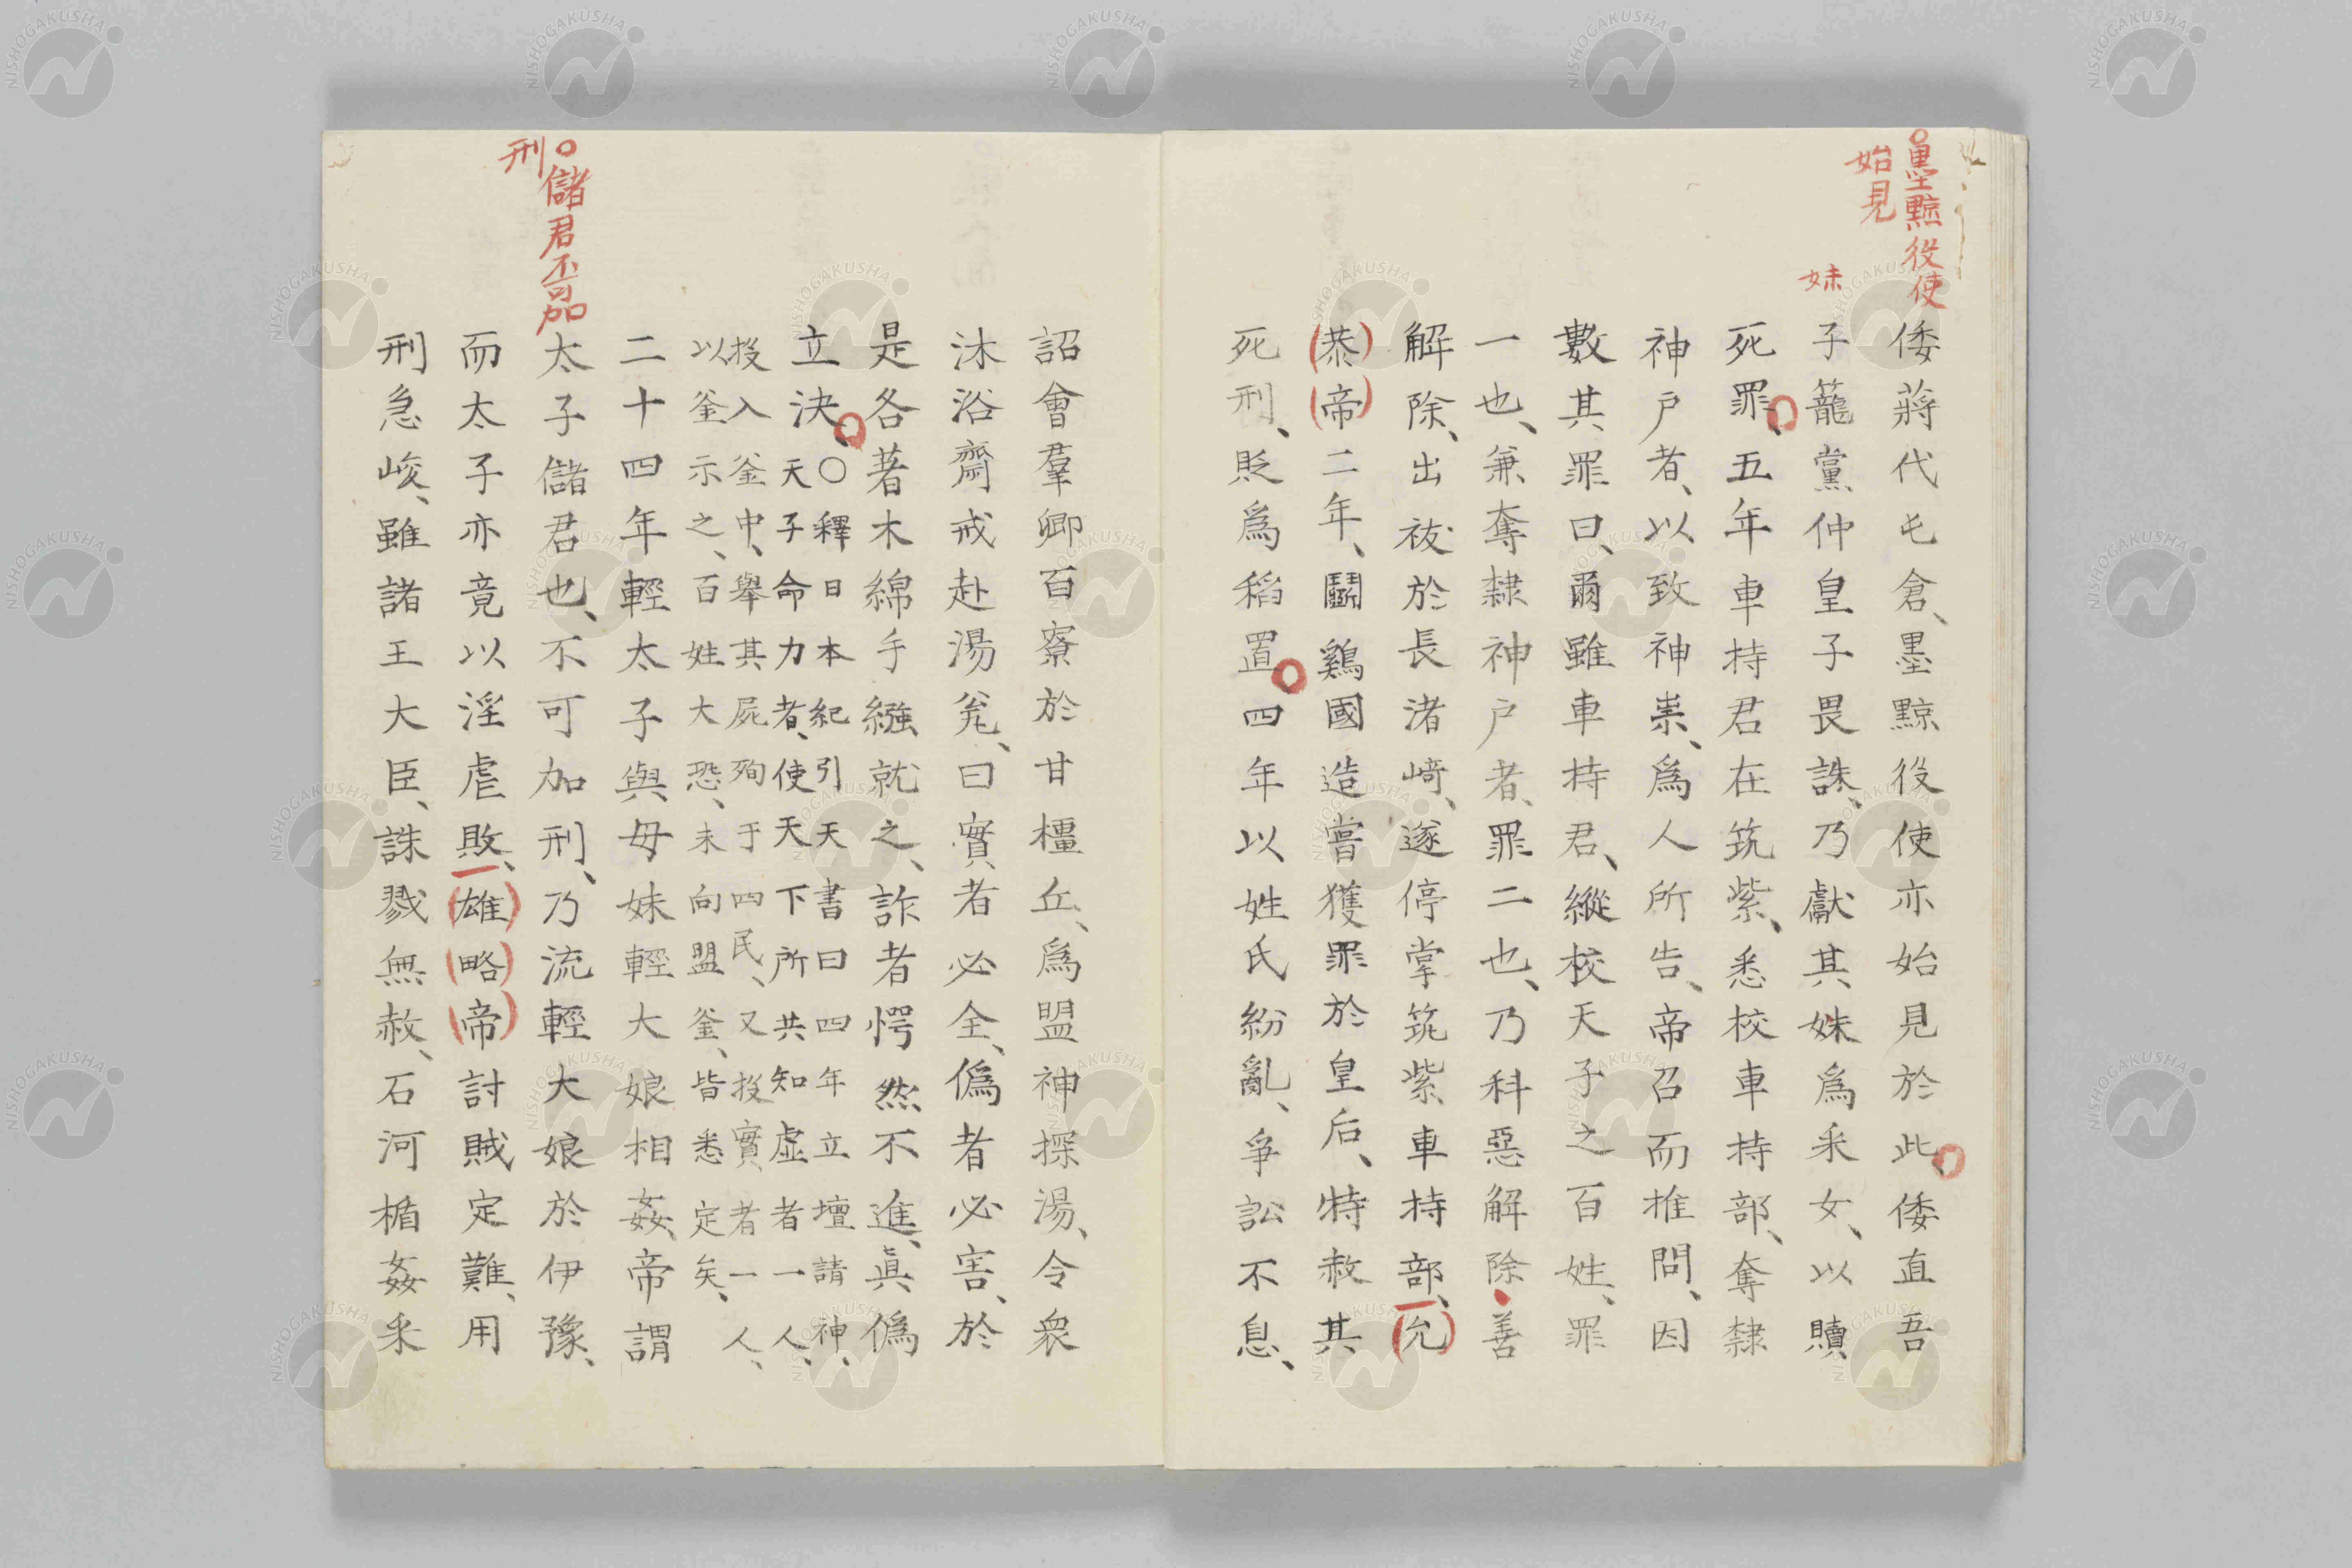 墨黥役使
始見
妹
倭蔣代屯倉、墨黥役使亦始見於此、倭直吾
子籠黨仲皇子畏誅、乃獻其妹爲釆女、以贖
死罪、五年車持君在筑紫、悉校車持部、奪隷
神戸者、以致神祟、爲人所告、帝召而推問、因
數其罪曰、爾雖車持君、縱校天子之百姓、罪
一也、兼奪隷神戸者、罪二也、乃科惡解除善
解除、出祓於長渚崎、遂停掌筑紫車持部、允
恭帝二年、鬪鷄國造嘗獲罪於皇后、特赦其
死刑、貶爲稻置四年以姓氏紛亂、爭訟不息、
詔會羣卿百寮於甘橿丘、爲盟神探湯、令衆
沐浴齋戒赴湯瓮、曰實者必全、僞者必害、於
是各著木綿手繦就之、詐者愕然不進、眞僞
立決、〇釋日本紀引天書曰四年立壇請神、
天子命力者、使天下所共知虛者一人、
投入釜中、舉其屍殉于四民、又投實者一人、
以釜示之、百姓大恐、未向盟釜、皆悉定矣、
二十四年輕太子與母妹輕大娘相姦、帝謂
儲君不可加
刑
太子儲君也、不可加刑、乃流輕大娘於伊豫、
而太子亦竟以淫虐敗、雄略帝討賊定難、用
刑急峻、雖諸王大臣、誅戮無赦、石河楯姦釆
NISHOGAKUSHA